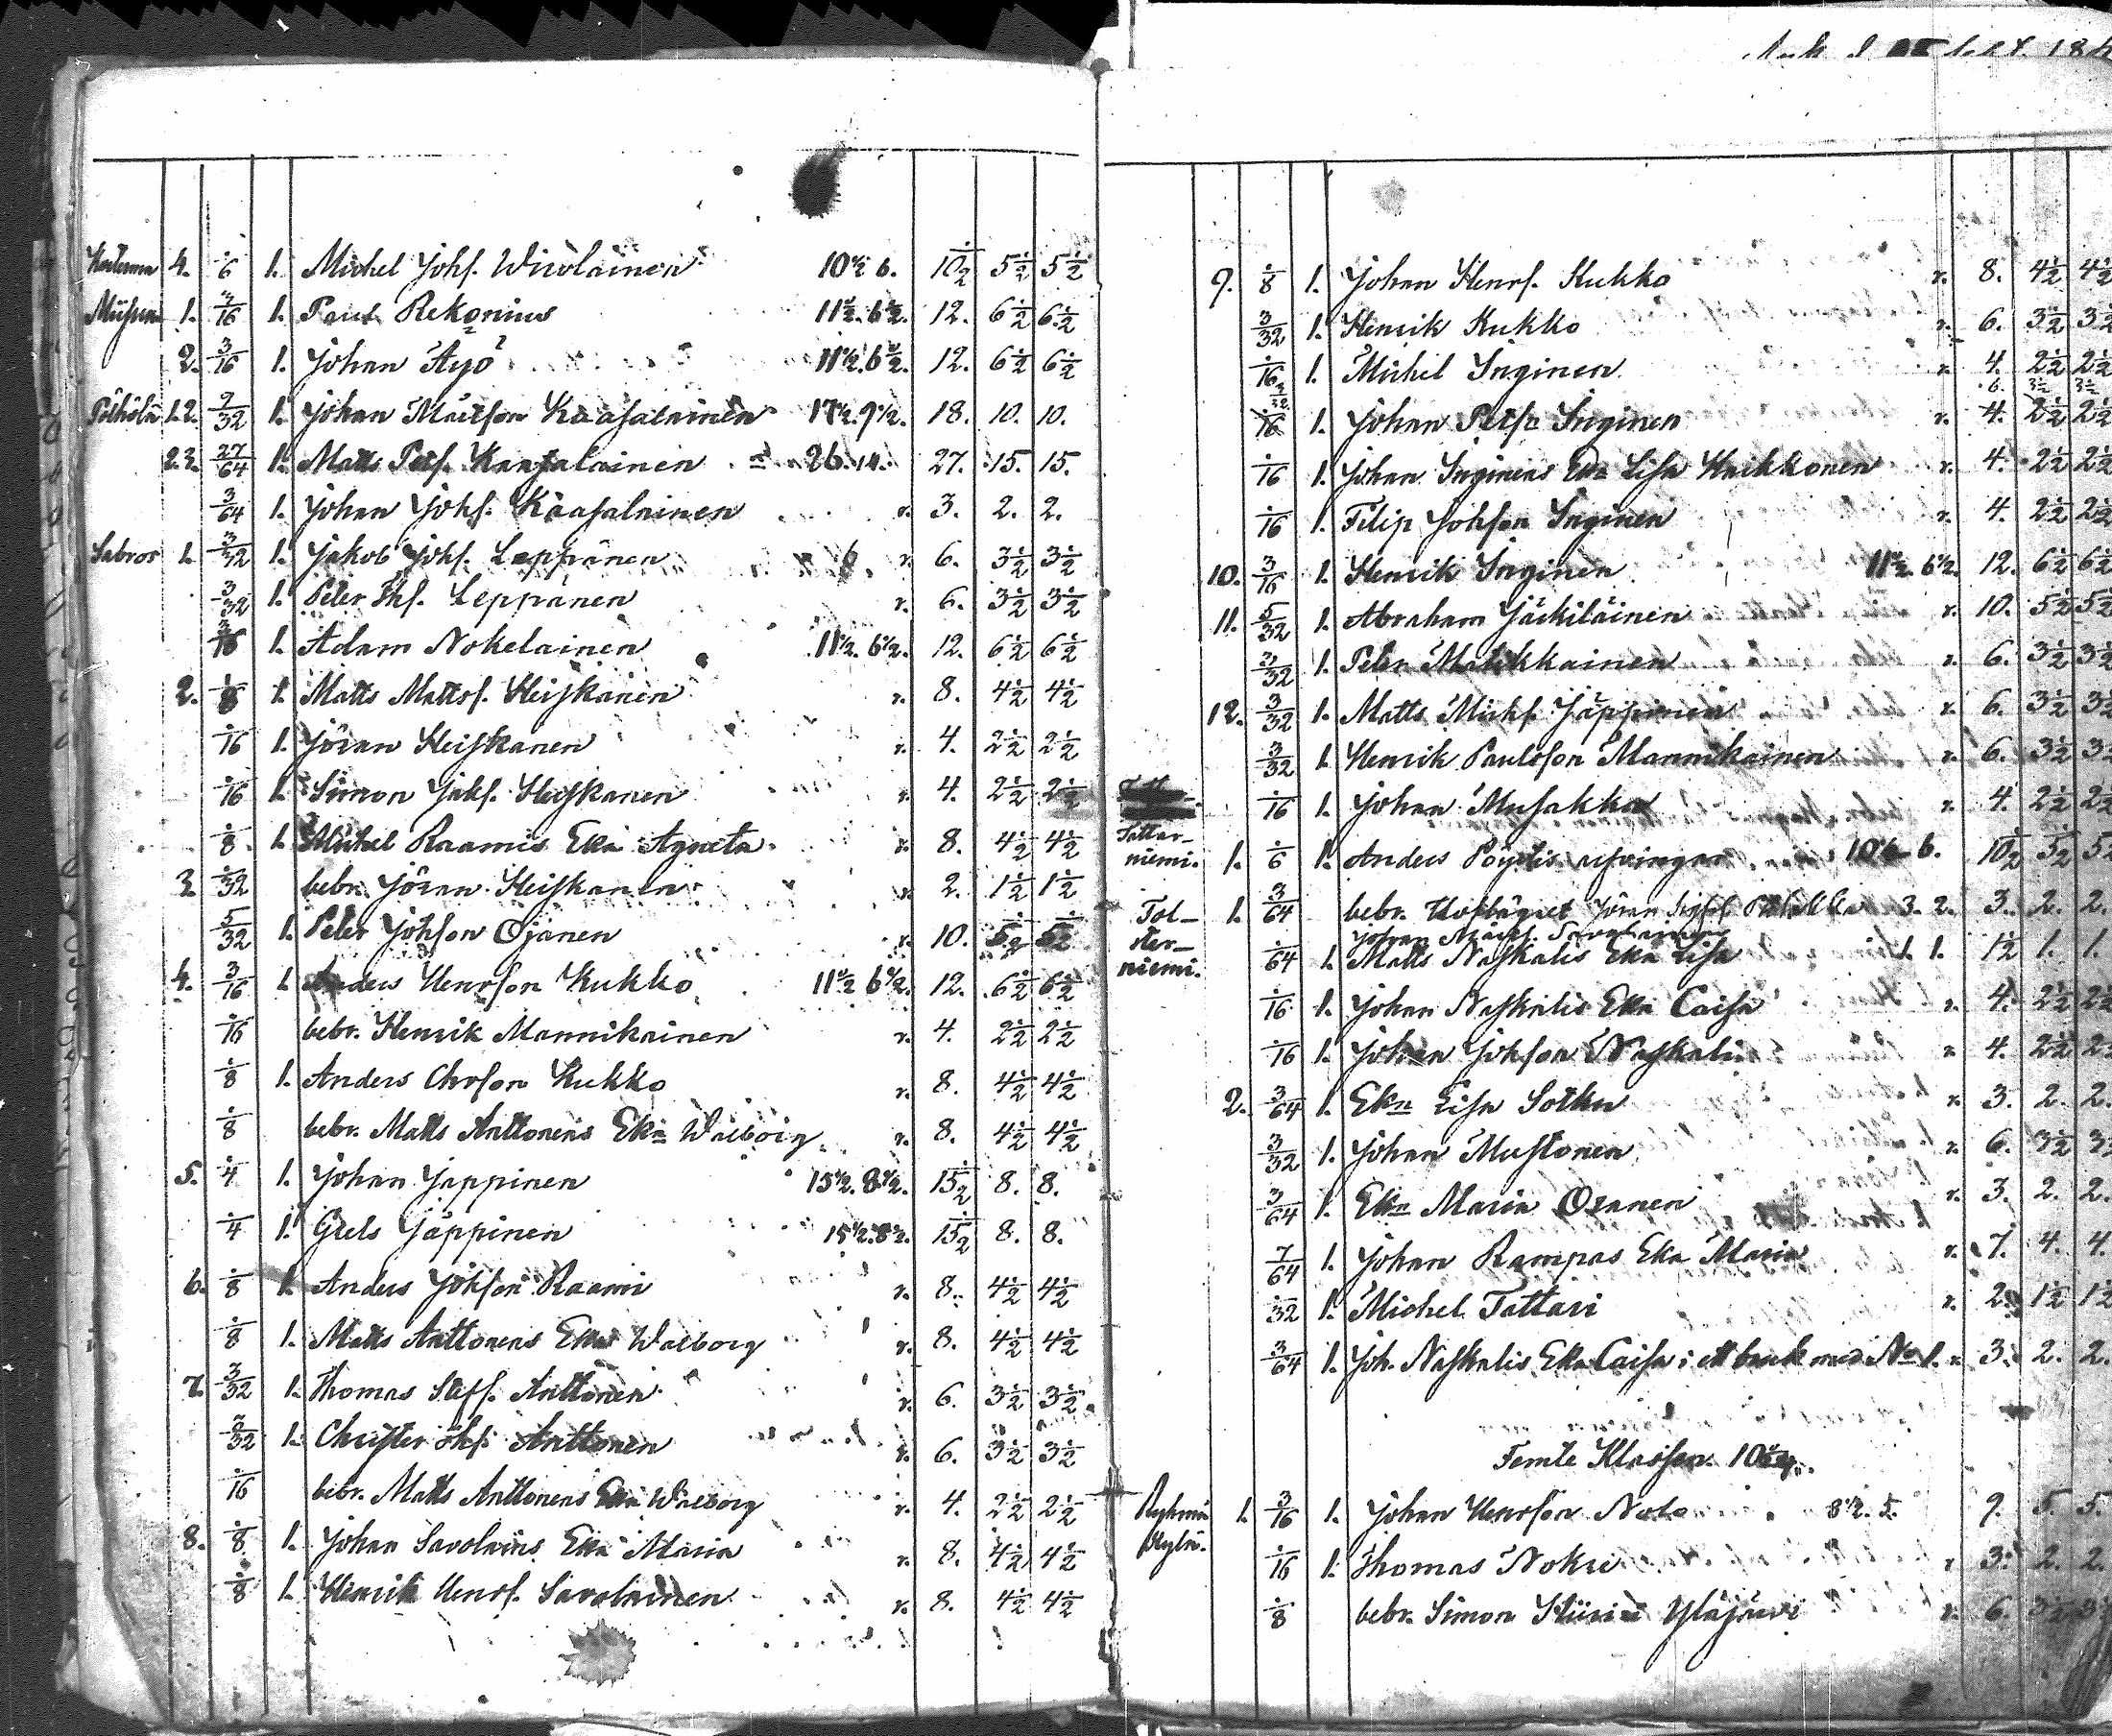 4. 1/6 1. Michel Johs. Wirolainen 10 1/2 6. 10 1/2 5 1/2 5 1/2
1. 3/16 1. Paul Rekonius 11 1/2. 6 1/2. 12. 6 1/2 6 1/2
2. 3/16 1. Johan Äyö 11 1/2. 6 1/2. 12. 6 1/2 6 1/2
Pölhölä 1.2. 9/32 1. Johan Mattson Kaasalainen 17 1/2. 9 1/2. 18. 10. 10.
2.3. 27/64 1. Matts Petf. Kaasalainen 26. 14. 27. 15. 15.
3/64 1. Johan Johf. Kaasalainen r. 3. 2. 2.
Sabros 1. 3/32 1. Jakob Johf. Leppänen 6 r. 6. 3 1/2 3 1/2
3/32 1. Peter Johf. Leppänen r. 6. 3 1/2 3 1/2
3/16 1. Adam Nokelainen 11 1/2. 6 1/2. 12. 6 1/2 6 1/2
2. 1/8 1. Matts Mattsf. Heiskanen r. 8. 4 1/2 4 1/2
1/16 1. Jöran Heiskanen r. 4. 2 1/2 2 1/2
1/16 1. Simon Jakf. Heiskanen r. 4. 2 1/2 2 1/2
1/8 1. Michel Raamis Eka Agneta r. 8. 4 1/2 4 1/2
3. 1/32 bebr. Jöran Heiskanen r. 2. 1 1/2 1 1/2
5/32 1. Peter Johfon Ojanen r. 10. 5 1/2 5 1/2
4. 3/16 1. Anders Henrson Kukko 11 1/2 6 1/2. 12. 6 1/2 6 1/2
1/16 bebr. Henrik Mannikainen r. 4. 2 1/2 2 1/2
1/8 1. Anders Chrson Kukko r. 8. 4 1/2 4 1/2
1/8 bebr. Matts Anttonens Eka Walborg r. 8. 4 1/2 4 1/2
5. 1/4 1. Johan Jäppinen 15 1/2. 8 1/2. 15 1/2 8. 8.
1/4 1. Grels Jäppinen 15 1/2. 8 1/2. 15 1/2 8. 8.
6. 1/8 1. Anders Johfon Raami r. 8. 4 1/2 4 1/2
1/8 1. Matts Anttonens Eka Walborg r. 8. 4 1/2 4 1/2
7. 3/32 1. Thomas Steff. Anttonen r. 6. 3 1/2 3 1/2
3/32 1. Christer Anttonen r. 6. 3 1/2 3 1/2
1/16 bebr. Matts Anttonens Eka Walborg r. 4. 2 1/2 2 1/2
8. 1/8 1. Johan Savolains Eka Maria r. 8. 4 1/2 4 1/2
1/8 1. Henrik Henrs. Savolainen r. 8. 4 1/2 4 1/2
9. 1/8 1. Johan Henrs. Kukko r. 8. 4 1/2 4 1/2
3/32 1. Henrik Kukko r. 6. 3 1/2 3 1/2
1/16 1. Michel Inginen r. 4. 2 1/2 2 1/2
1/16 1. Johan Petfn Inginen r. 4. 2 1/2 2 1/2
1/16 1. Johan Inginens Eka Lisa Kaikkonen r. 4. 2 1/2 2 1/2
1/16 1. Filip Johfon Inginen r. 4. 2 1/2 2 1/2
10. 3/16 1. Henrik Inginen 11 1/2. 6 1/2. 12. 6 1/2 6 1/2
11. 5/32 1. Abraham Jäckiläinen r. 10. 5 1/2 5 1/2
3/32 1. Peter Malikkainen r. 6. 3 1/2 3 1/2
12. 3/32 1. Matts Michf. Jäppinen r. 6. 3 1/2 3 1/2
3/32 1. Henrik Paulsson Mannikainen r. 6. 3 1/2 3 1/2
1/16 1. Johan Musakka r. 4. 2 1/2 2 1/2
Tattar-
niemi. 1. 1/6 1. Anders Pöyelis 10 1/2 6. 10 1/2 5 1/2 5
Tol-
ster-
niemi. 1. 3/64 bebr. Hoflägret Jöran 3. 2. 3. 2. 2.
Johan
1/64 1. Matts Naskalis Eka Lisa 1. 1. 1 1/2 1. 1.
1/16 1. Johan Naskalis Eka Caisa r. 4. 2 1/2 2 1/2
1/16 1. Johan Johfon Naskali r. 4. 2 1/2 2
2. 3/64 1. Eka Lisa Sotku r. 3. 2. 2.
3/32 1. Johan Mustonen r. 6. 3 1/2 3
3/64 1. Eka Maria Oranen r. 3. 2. 2.
7/64 1. Johan Rampas Eka Maria r. 7. 4. 4
1/32 1. Michel Tattari r. 2. 1 1/2 1 1/2
3/64 1. Joh. Naskalis Eka Caisa i ett bruk med No 1. r. 3. 2. 2.
Femte Klassen. 10
1. 3/16 1. Johan Henrson Noko 8 1/2. 5. 9. 5. 5.
1/16 1. Thomas Nokre r. 3. 2. 2.
1/8 bebr. Simon Yläjärvi r. 6. 3 1/2 3